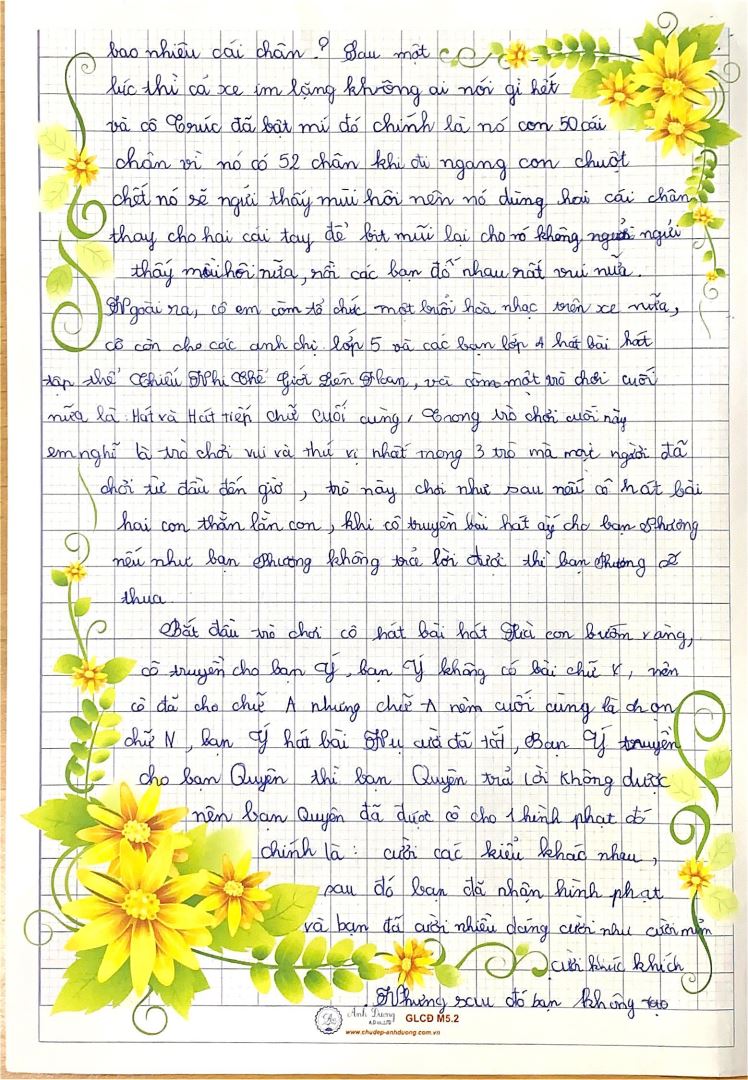 bao nhiêu cái chân ? Sau một
lúc thì cả xe im lặng không ai nói gì hết
và cô Trúc đã bật mí đó chính là nó con 50 cái
chân vì nó có 52 chân khi đi ngang con chuột
chết nó sẽ ngửi thấy mùi hôi nên nó dùng hai cái chân
thay cho hai cái tay để bịt mũi lại cho nó không ngửi
thấy mùi hôi nữa, rồi các bạn đố nhau rất vui nữa.
Ngoài ra, cô em còn tổ chức một buổi hoà nhạc trên xe nữa,
cô còn cho các anh chị lớp 5 và các bạn lớp 4 hát bài hát
tập thể Thiếu Nhi Thế Giới Liên Hoan, và còn một trò chơi cuối
nữa là : Hát và Hát tiếp chữ cuối cùng, Trong trò chơi cuối này
em nghĩ là trò chơi vui và thú vị nhất trong 3 trò mà mọi người đã
chơi từ đầu đến giờ, trò này chơi như sau nếu cô hát bài
hai con thằn lằn con, khi cô truyền bài hát ấy cho bạn Phương
nếu như bạn Phương không trả lời được thì bạn Phương sẽ
thua.
Bắt đầu trò chơi cô hát bài hát Kìa con bướm vàng,
cô truyền cho bạn Ý, bạn Ý không có bài chữ V, nên
cô đã cho chữ A nhưng chữ A nằm cuối cùng là chọn
chữ N, bạn Ý hát bài Nụ cười đã tắt, Bạn Ý truyền
cho bạn Quyên thì bạn Quyên trả lời không được
nên bạn Quyên đã được cô cho 1 hình phạt đó
chính là : cười các kiểu khác nhau,
sau đó bạn đã nhận hình phạt
và bạn đã cười nhiều dáng cười như cười mỉm
cười khúc khích
Nhưng sau đó bạn không tạo
Anh Dương GLCD M5.2
www.chudep-anhduong.com.vn